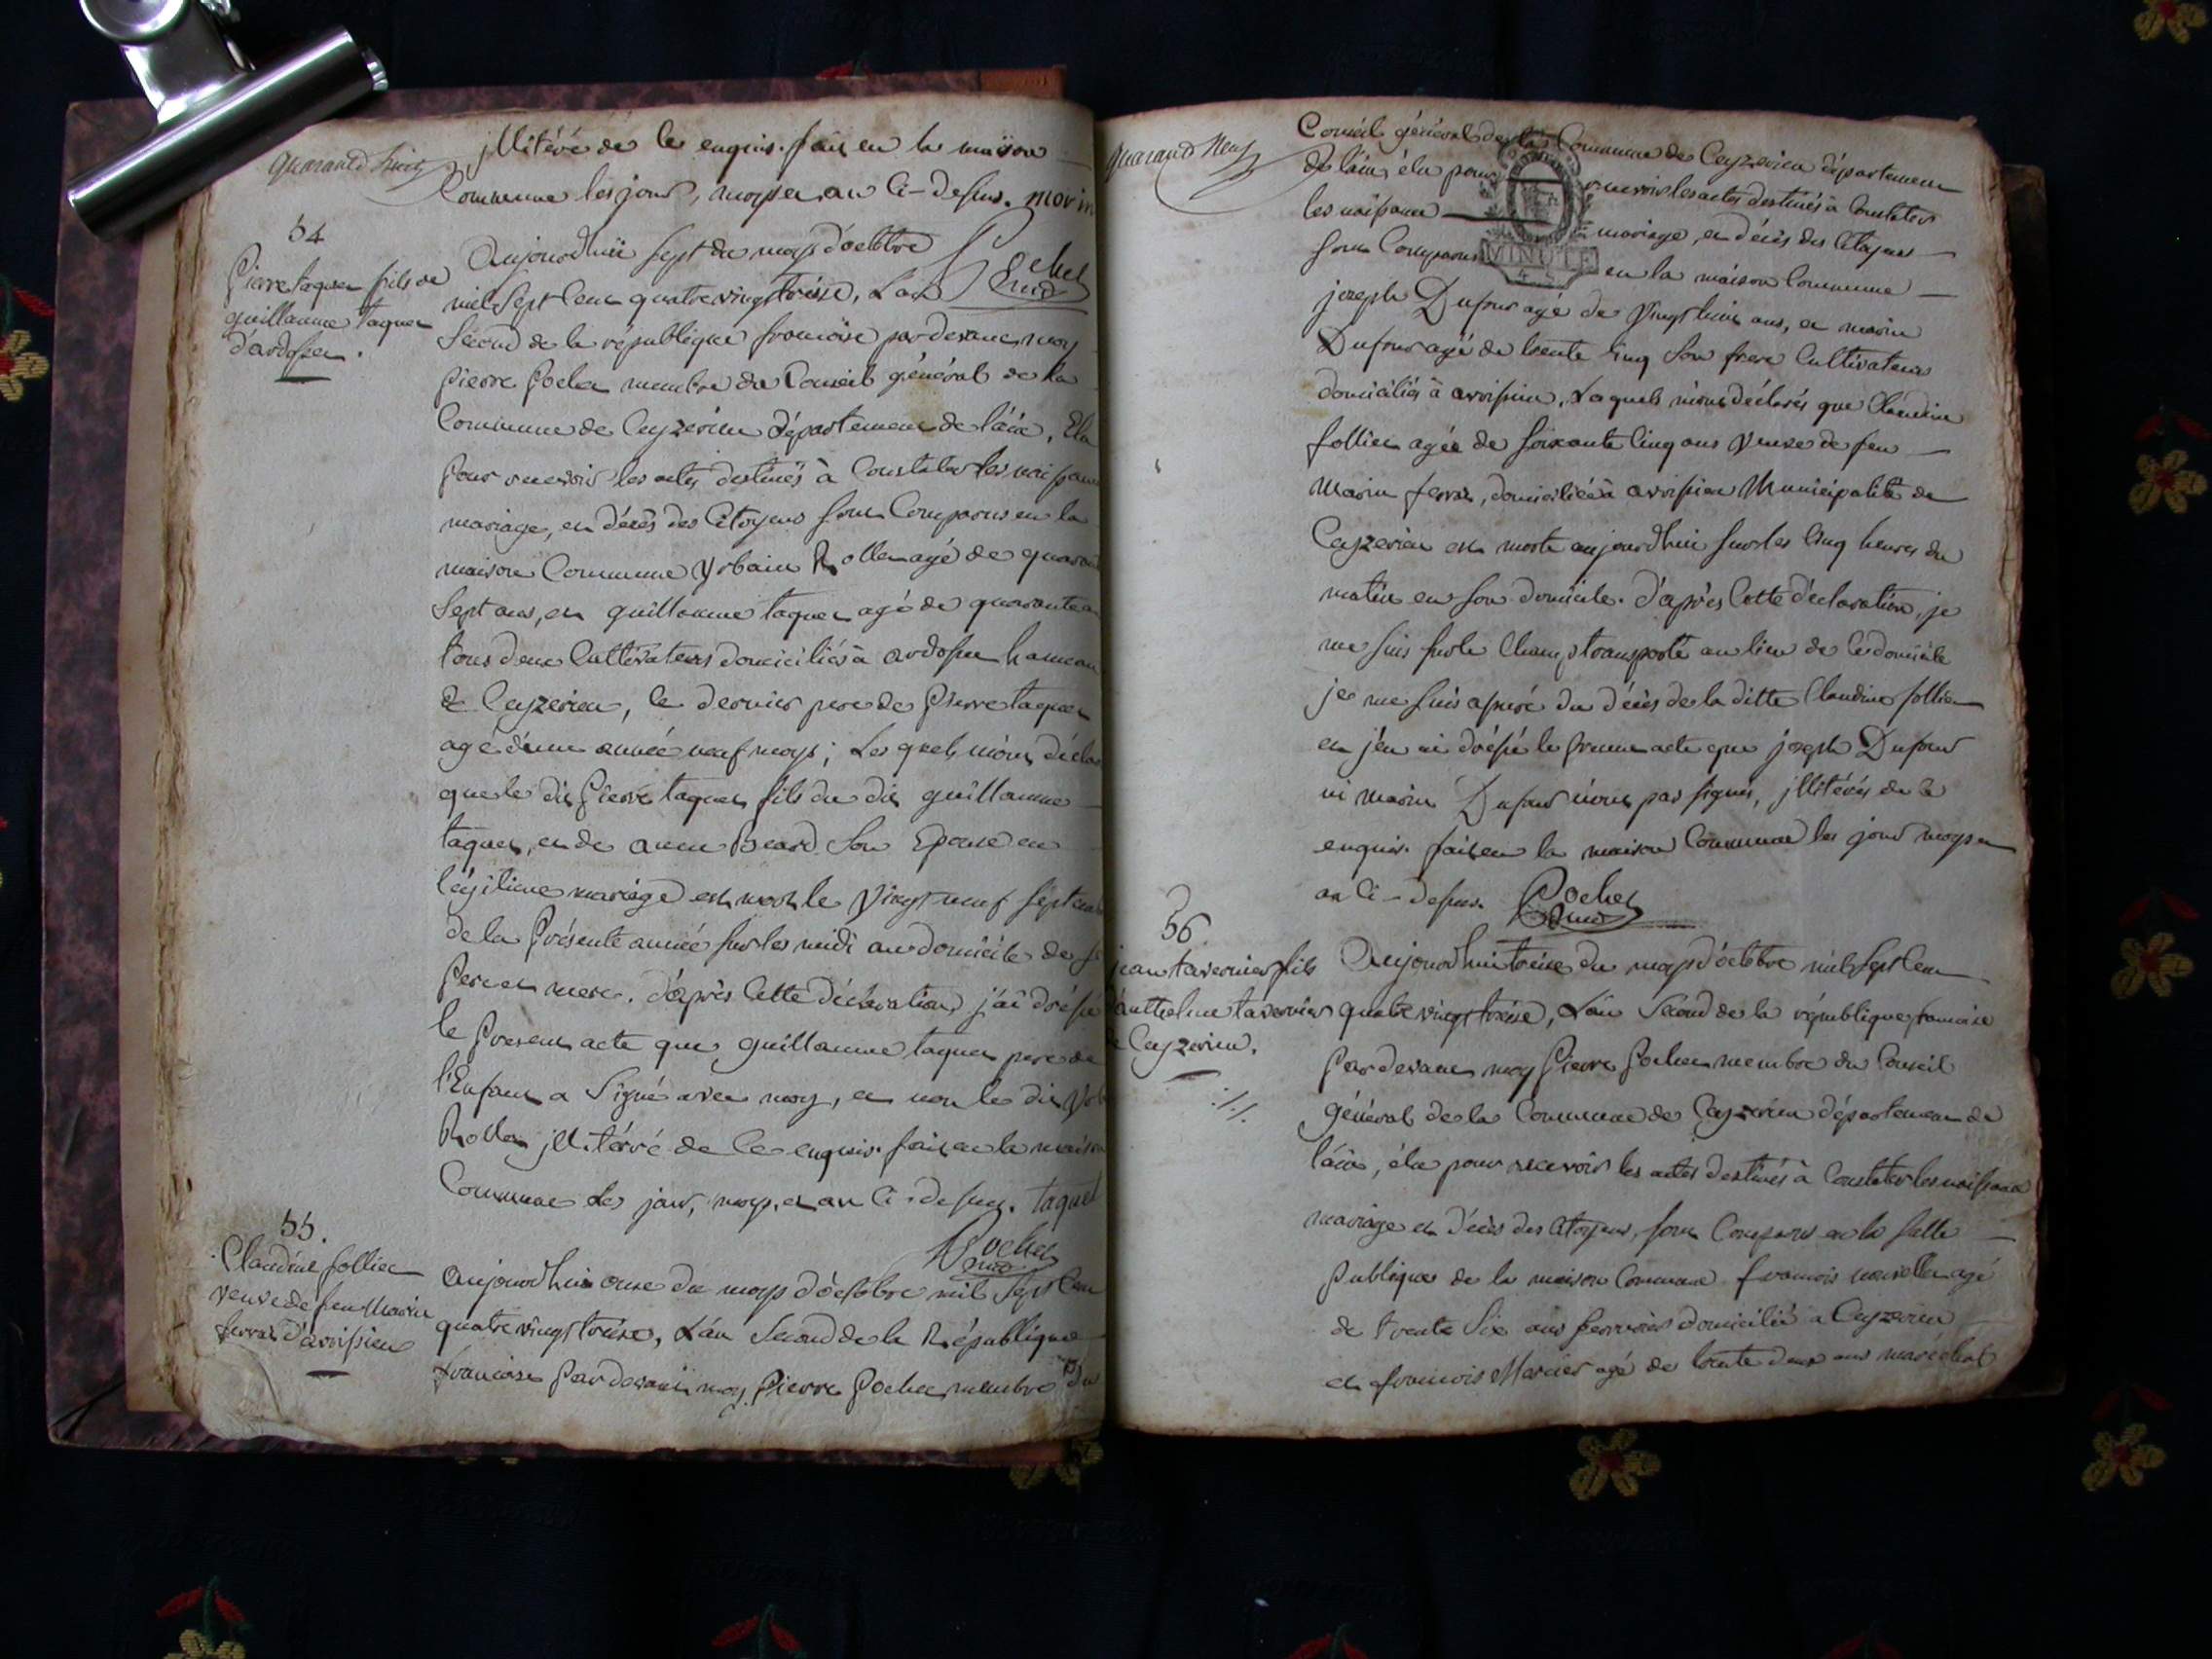 quarante huit
jllitéré de ce enquis. fait en la maison
Commune les jour, moys et an Ci-dessus. morin
54
Pierre taquet fils de
guillaume taquet
d'ardosset.
Aujourd'huï sept du moys d'octobre
mil Sept Cent quatre vingt treise, L'an
Pochet
Second de la république francoise pardevant moy
Pierre Pochet membre du Conseil général de la
Commune de Ceyzerieu département de l'áin, Elu
pour recevoir les actes destinés à Constater les naissan
mariage, et décès des Citoyens sont Comparus en la
maison Commune Vrbain Rollet agé de quaran
Sept ans, et guillaume taquet agé de quarante
tous deux Cultivateurs domiciliés à ardosset hameau
de Ceyzerieu, ce dernier pere de Pierre taquet
agé d'une année neuf moys; Les quels m'ont décla
que le dit Pierre taquet fils du dit guillaume
taquet, et de Béard Son Epouse en
légitime mariage est mort le vingt neuf septem
de la Présente année sur les midi au domicile de
Pere et mere. d'après Cette déclaration j'ai dréssé
le Present acte que guillaume taquet pere de
l'Enfant a Signé avec moy, et non le dit Vrb
Rollet jllitérré de Ce enquis. fait en la maison
Commune Les jour, moys, et an Ci-dessus. taquet
Pochet
55.
Claudine folliet
veuve de feu Marin
ferraz d'avrissieu
Aujourd'hui onze du moys d'octobre mil Sept Cent
quatre vingt treise, L'án Second de la République
francoise Pardevant moy Pierre Pochet membre du
quarante Neuf
Conseil général de la Commune de Ceyzerieu département
de l'ain, élu pour recevoir les actes destinés à Constater
les naissance mariage, et décès des Citoyens
MINUTE
sont Comparus en la máison Commune
jozeph Dufour agé de Vingt huit ans, et marin
Dufour agé de trente Cinq Son frere Cultivateurs
domiciliés à avrissieu, Lesquels m'ont déclarés que Claudine
follier agée de soixante Cinq ans Veuve de feu
Marin ferraz, domiciliée à avrissieu Municipalité de
Ceyzerieu est morte aujourd'hui sur les Cinq heures du
matin en son domicile. d'après Cette déclaration, je
me suis sur le Champ transporté au lieu de Ce domicile
je me suis assuré du décès de la ditte Claudine follier
et j'en ai dréssé le présent acte que jozeph Dufour
ni Marin Dufour n'ont pas signés, jllitérés de Ce
enquis. fait en la maison Commune les jour moys et
an Ci-dessus. Pochet
56
jean tavernier fils
d'anthelme tavernier
de Ceyzerieu.
Aujourd'hui treise du moys d'octobre mil Sept Cent
quatre vingt treise, L'án Sécond de la république francoise
Pardevant moy Pierre Pochet membre du Conseil
général de la Commune de Ceyzerieu département de
l'áin, élu pour recevoir les actes destinés à Constater les naissance
mariage et décès des Citoyens, sont Comparus en la salle
publique de la maison Commune francois agé
de trente Six ans domicilié a Ceyzerieu
et francois Mercier agé de trente deux ans maréchal